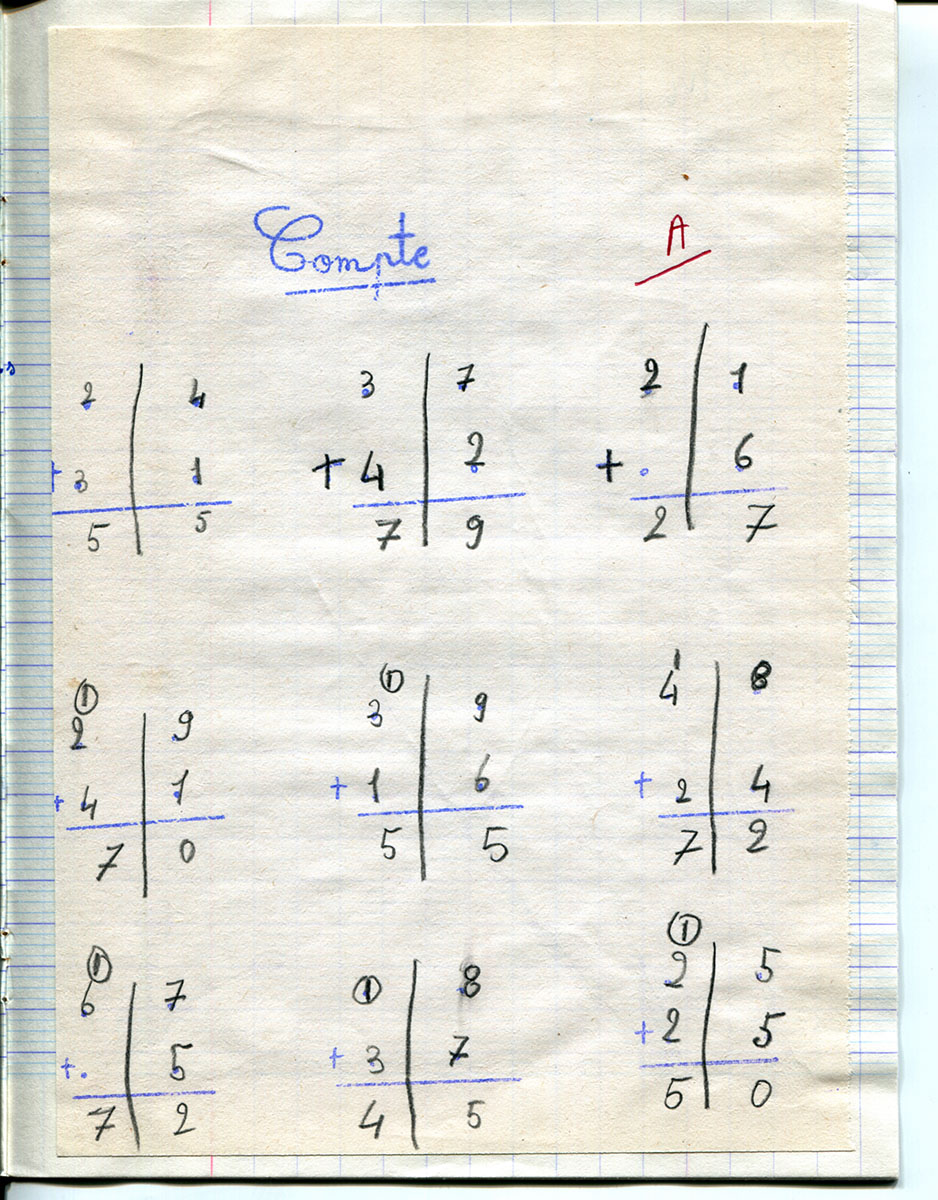 Compte A
2 4 3 7 2 1
+ 3 1 + 4 2 + . 6
5 5 7 9 2 7
① ① 1
2 9 3 9 4 8
+ 4 1 + 1 6 + 2 4
7 0 5 5 7 2
① ①
6 7 ① 8 2 5
+ . 5 + 3 7 + 2 5
7 2 4 5 5 0